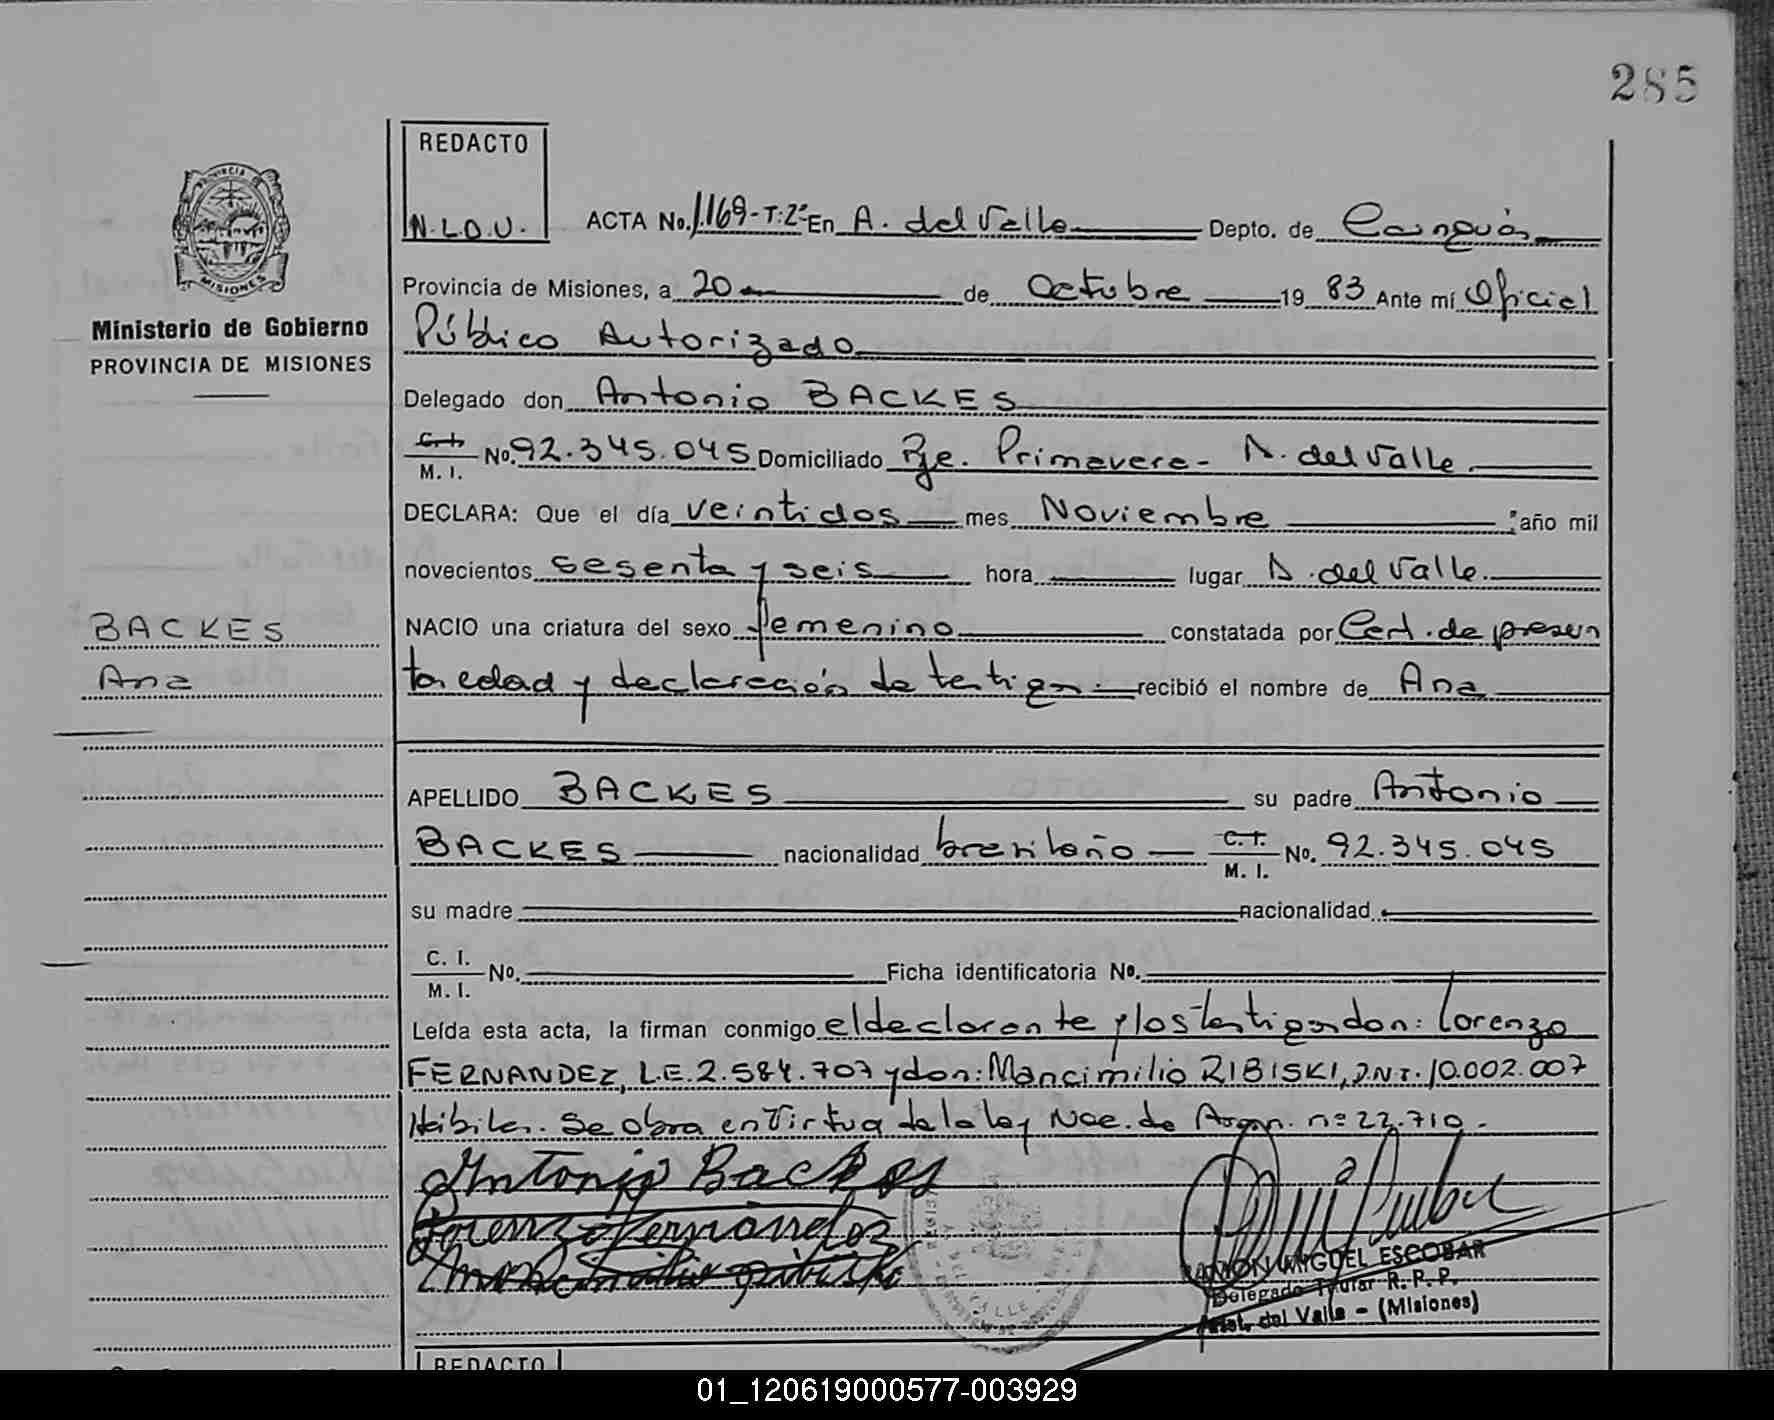 285
REDACTO
N.L.D.U.
ACTA No. 1.169-T:2º En A. del Valle Depto. de Cainguás
PROVINCIA DE MISIONES
Provincia de Misiones, a 20 de Octubre 19 83 Ante mí Oficial
Ministerio de Gobierno
PROVINCIA DE MISIONES
Público Autorizado
Delegado don Antonio BACKES
C. I. M. I. No. 92.345.045 Domiciliado Pje. Primavera - A. del Valle
DECLARA: Que el día veintidos mes Noviembre año mil
novecientos sesenta y seis hora lugar A. del Valle.
BACKES
Ana
NACIO una criatura del sexo femenino constatada por Cert. de presun
ta edad y declaración de testigos. recibió el nombre de Ana
APELLIDO BACKES su padre Antonio
BACKES nacionalidad brasileño C. I. M. I. No. 92.345.045
su madre nacionalidad
C. I. M. I. No. Ficha identificatoria No.
Leída esta acta, la firman conmigo el declarante y los testigos don: Lorenzo
FERNANDEZ, L.E. 2.584.707 y don: Mancimilio RIBISKI, D.N.I. 10.002.007
Hábiles. Se obra en virtud de la ley Nac. de Argn. nº 22.710.
Antonio Backes
Lorenzo Fernandez
RAMON MIGUEL ESCOBAR
Delegado Titular R. P. P.
Arist. del Valle - (Misiones)
REDACTO
01_120619000577-003929